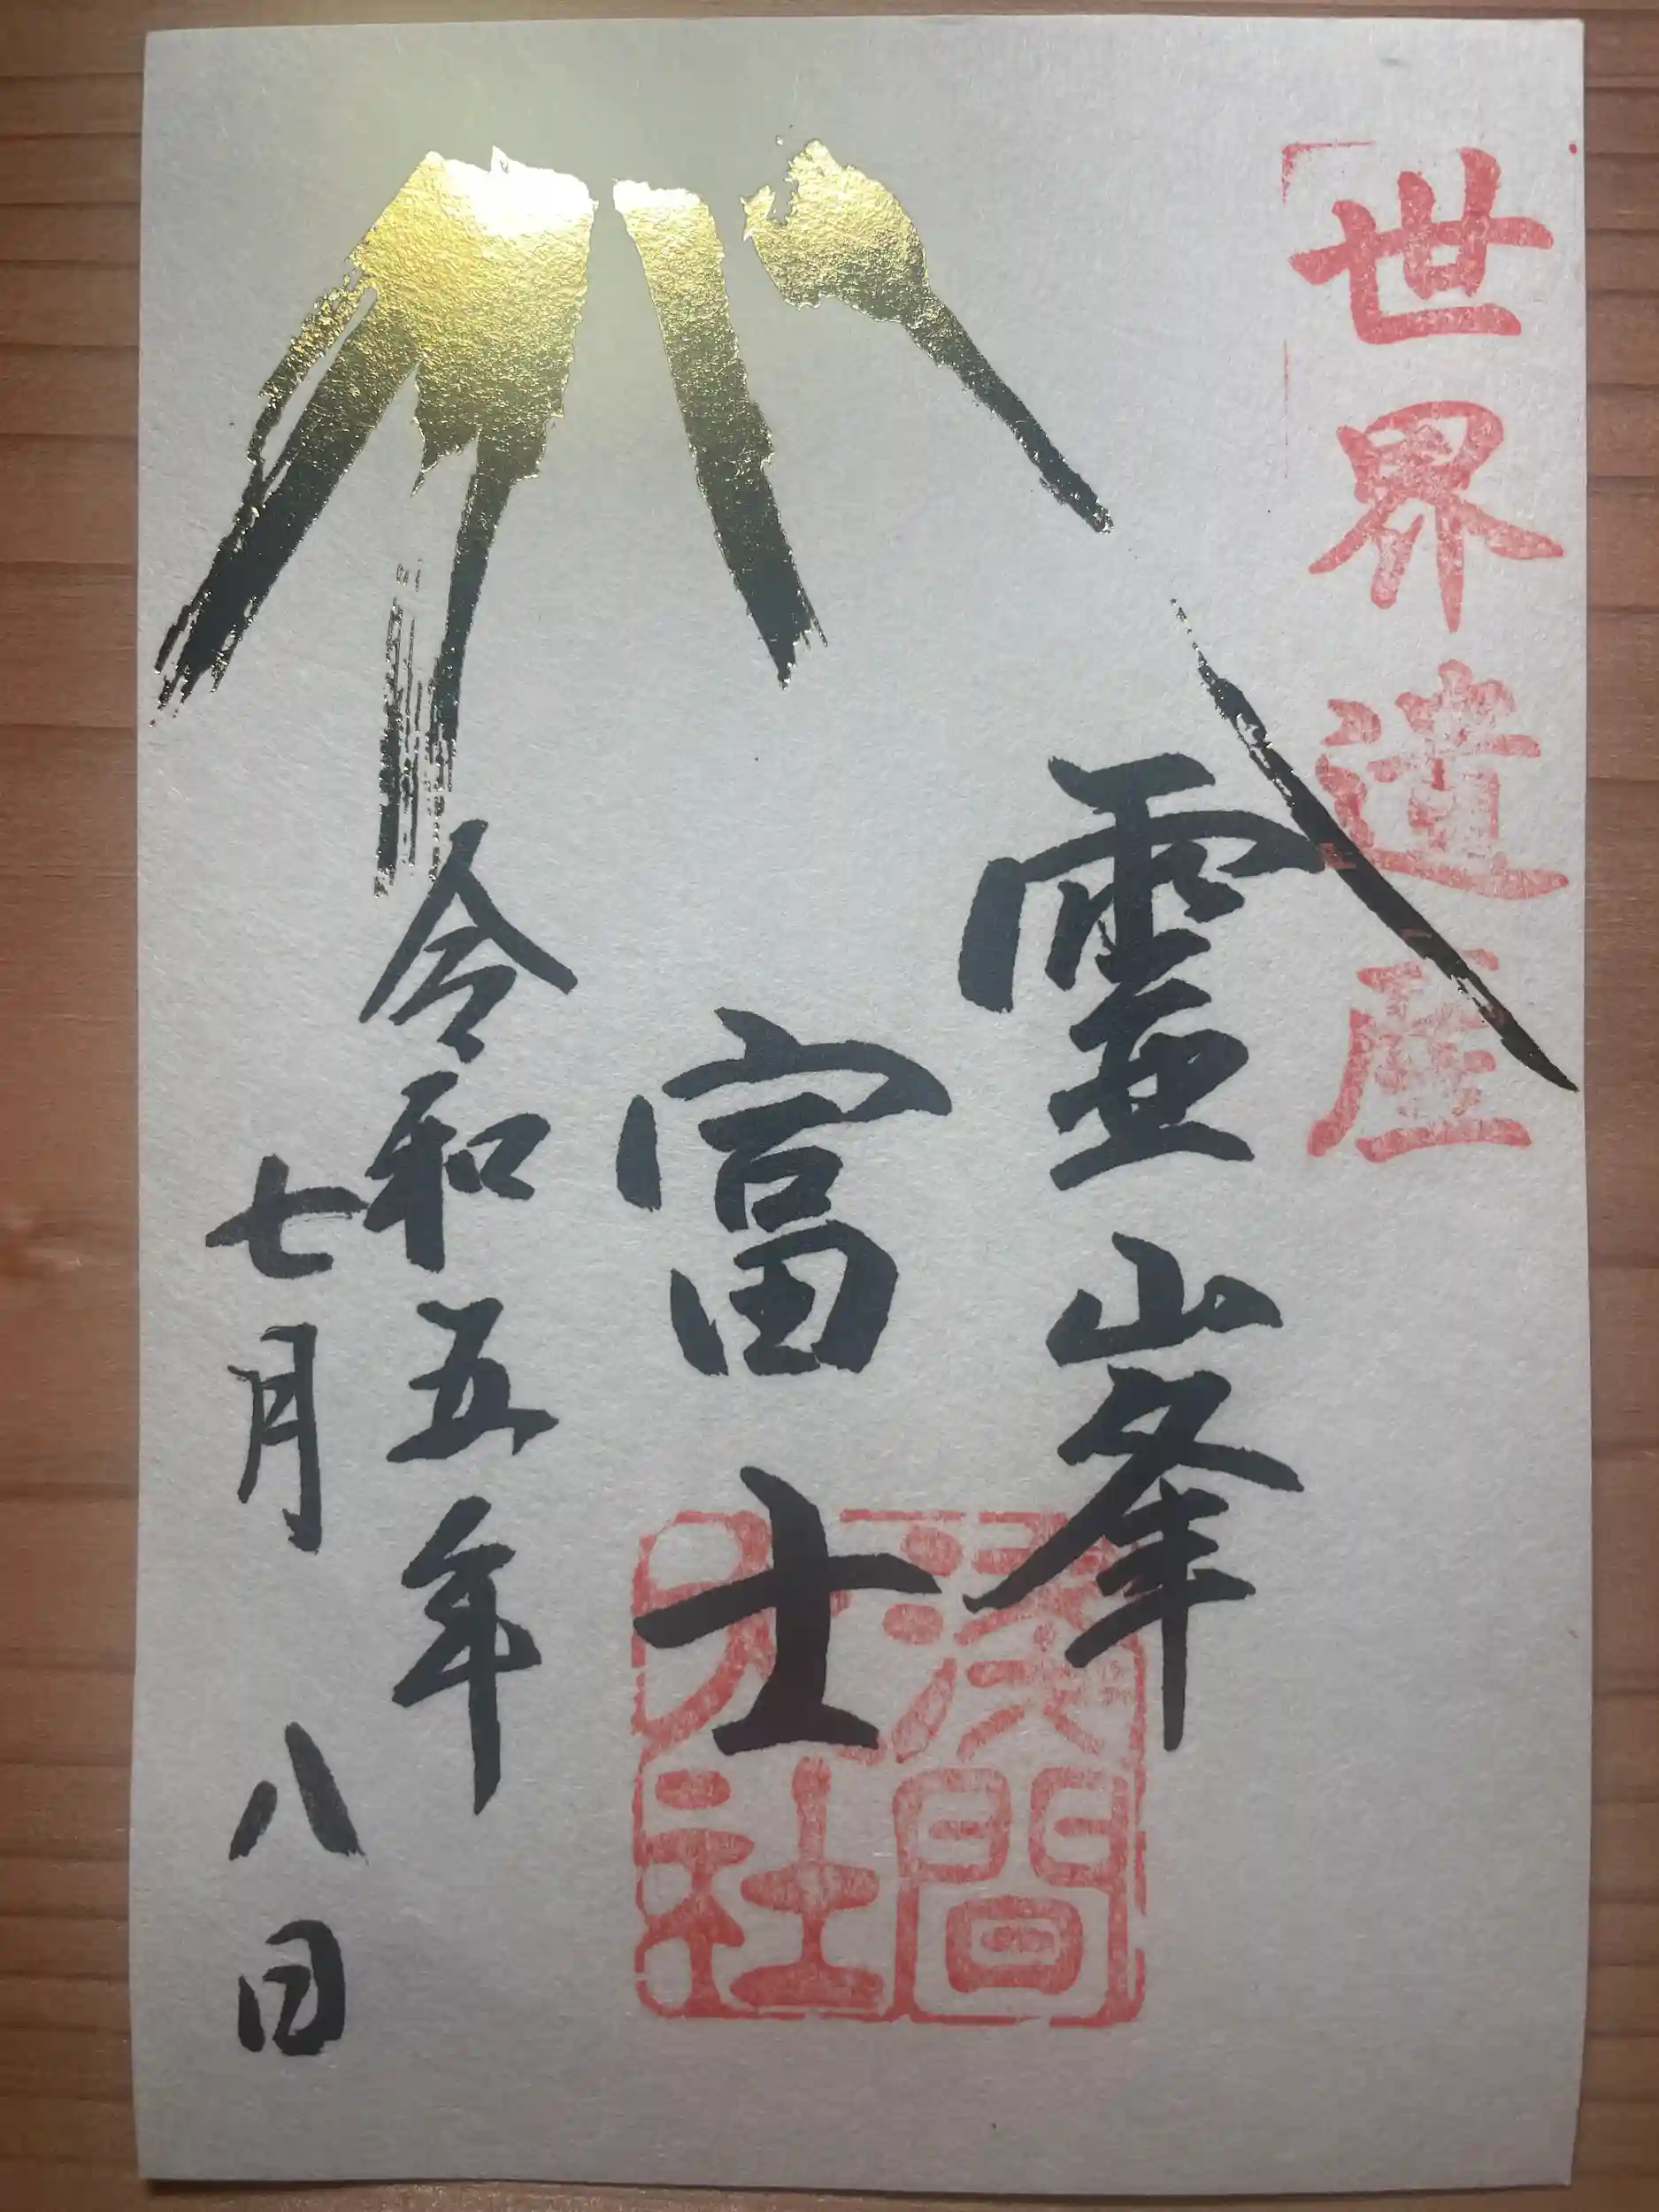 世界遺産
靈峯
富士
浅間
大社
令和五年
七月八日